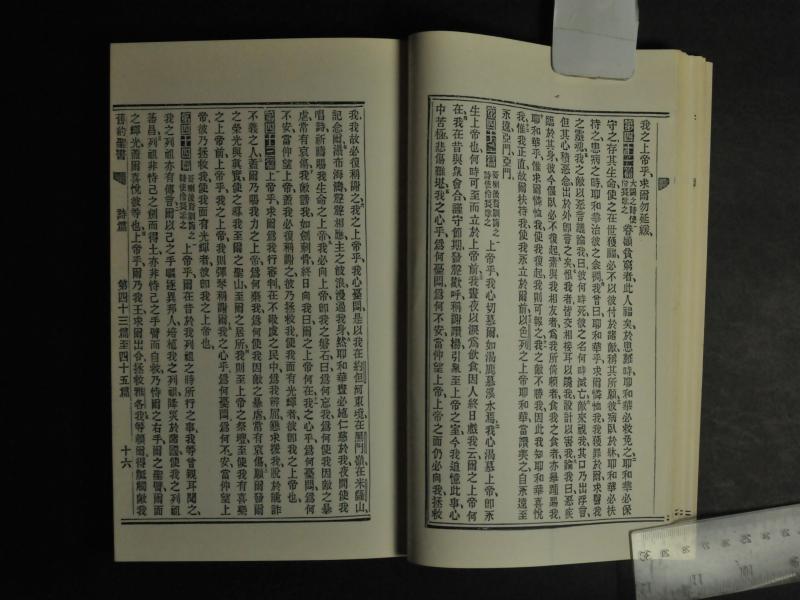 我之上帝乎、求爾勿延緩、
第四十一篇 大闢之詩使伶長歌之 眷顧貧窮者此人福矣於患難時耶和華必救免之耶和華必保
守之存其生命使之在世獲福必不以彼付於諸敵稱其所願彼病臥於牀耶和華必扶
持之患病之時耶和華治彼之我曾曰耶和華乎求爾憐恤我我獲罪於爾求醫我
之靈魂我之敵以惡言議論我曰彼何時死彼之名何時滅亡敵來視我其口乃出浮言
但其心積惡念出於外卽言之矣恨我者皆交相接耳以譏我設計以害我論我曰惡疾
臨於其身彼今偃臥必不復起素與我相友者爲我所倚賴者食我之食者亦舉踵踢我
耶和華乎惟求爾憐恤我使我復起我則可報之我之敵不勝我因此我知耶和華喜悅
我惟我正直故爾扶持我使我永立於爾前以色列之上帝耶和華當讚美之自永遠至
永遠亞門亞門、
第四十二篇 哥喇後裔訓誨之詩使伶長歌之 上帝乎我心切慕爾如渴鹿慕溪水焉我心渴慕上帝卽永
生上帝也何時可至而立於上帝前我晝夜以淚爲飲食因人終日戲我云爾之上帝何
在我在昔與衆會合謹守節期發聲歡呼稱謝讚揚引衆至上帝之室今我追憶此事心
中苦極悲傷難堪我之心乎爲何憂悶爲何不安當仰望上帝上帝之面仍必向我拯救
我、我故必復稱謝之、我之上帝乎、我心憂悶是以我在約但河東境在黑門嶺在米薩山、
記念爾瀑布海濤聲聲相應、主之波浪漫過我身然耶和華晝必施仁慈於我夜間使我
唱詩祈禱賜我生命之上帝、我必向上帝卽我之磐石曰爲何忘我爲何使我因敵之暴
虐常有哀傷我敵譏我如劍刺骨終日向我曰爾之上帝何在我之心乎爲何憂悶爲何
不安當仰望上帝蓋我必復稱謝之彼乃拯救我使我面有光輝者彼卽我之上帝也、
第四十三篇 上帝乎求爾爲我行審判在不敬虔之民中爲我辨屈懇求援我脫於詭詐
不義之人蓋爾乃賜我力之上帝爲何棄我爲何使我因敵之暴虐常有哀傷願爾發爾
之榮光與眞實使之導我至爾之聖山至爾之居所我則至上帝之祭壇至使我有喜樂
之上帝前上帝乎我之上帝我則彈琴稱謝爾我之心乎爲何憂悶爲何不安當仰望上
帝彼乃拯救我使我面有光輝者彼卽我之上帝也、
第四十四篇 哥喇後裔訓誨之詩使伶長歌之 上帝乎爾在昔於我列祖之時所行之事我等曾親耳聞之、
我之列祖亦有傳曾爾以己之手驅逐異邦人培植我之列祖降災於諸國使我之列祖
蕃昌列祖非恃己之劍而得土亦非恃己之手臂而自救乃恃爾之右手爾之聖臂爾面
之輝光蓋爾喜悅彼等也、上帝乎爾乃我王求爾出令拯救雅各我等賴爾得觝觸敵我
舊約聖書 詩篇 第四十三篇至四十五篇 十六